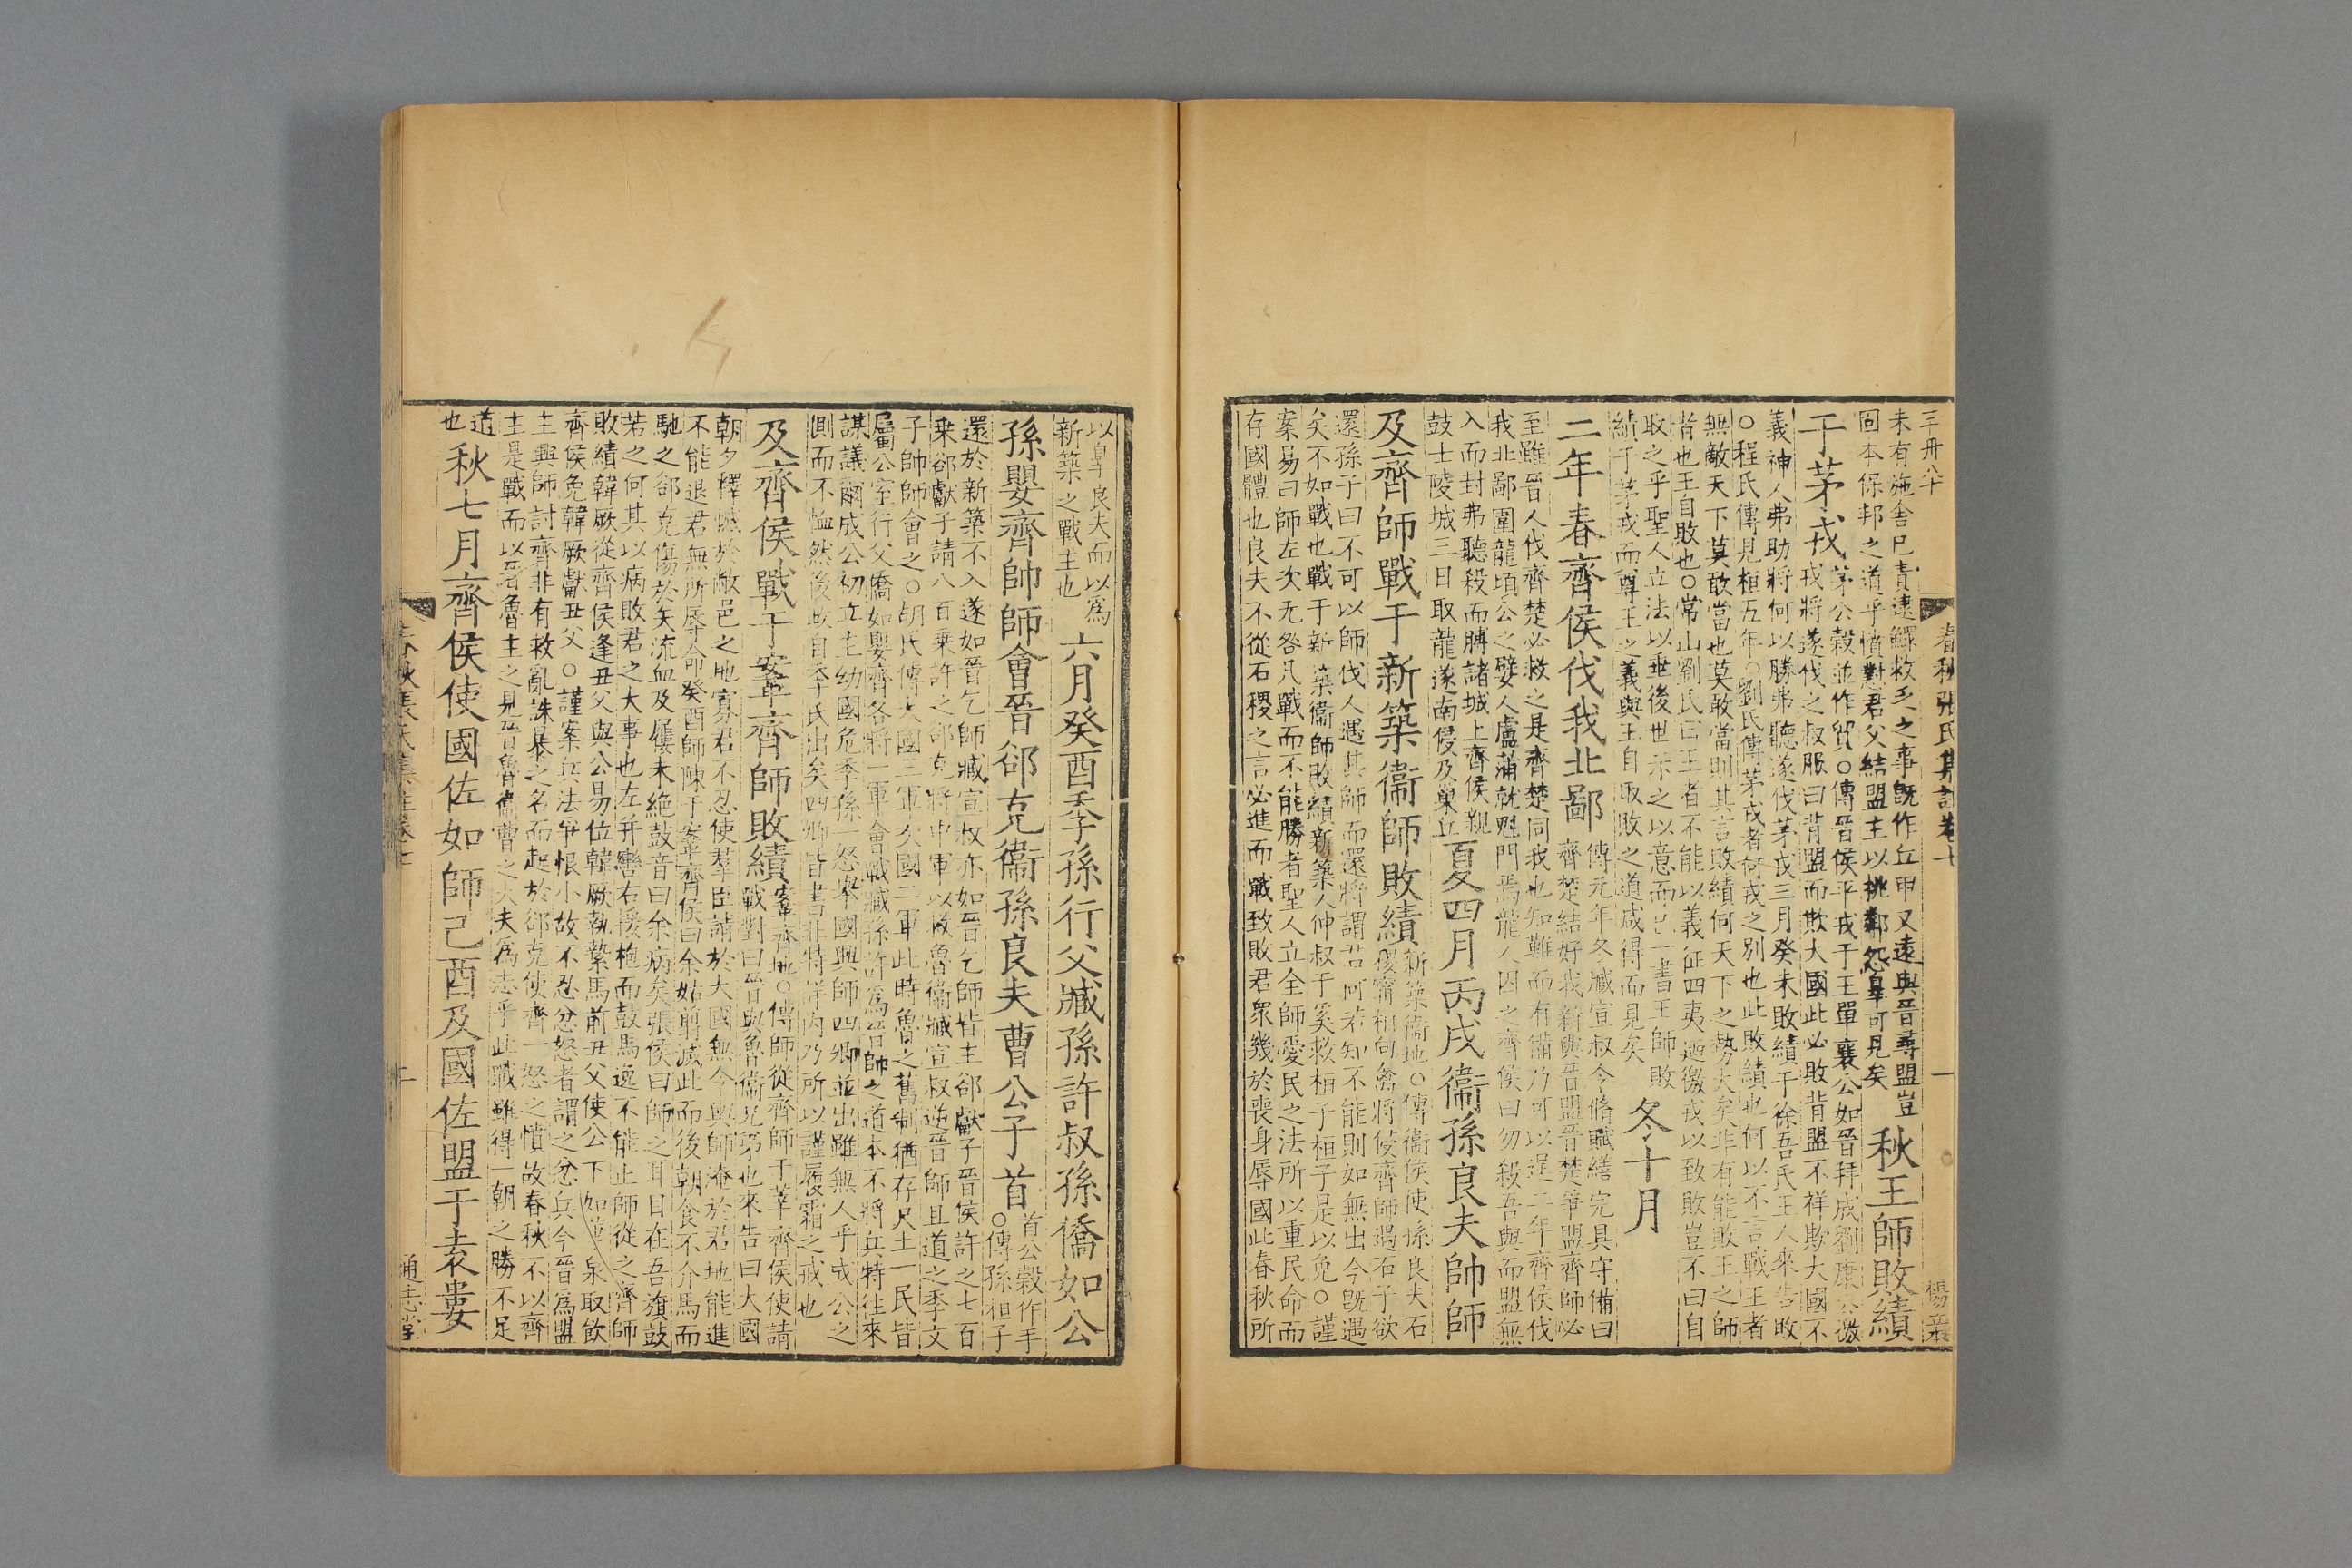 三卌八十
春秋張氏集註卷七
一
未有施舍已責逮鰥救乏之事旣作丘甲又遠與晉尋盟豈
固本保邦之道乎憤懟君父結盟主以挑鄰怨皐可見矣
秋王師敗績
于茅戎
茅公穀並作貿○傳晉侯平戎于王單襄公如晉拜成劉康公徼
戎將遂伐之叔服曰背盟而欺大國此必敗背盟不祥欺大國不
義神人弗助將何以勝弗聽遂伐茅戎三月癸未敗績于徐吾氏王人來告敗
○程氏傳見桓五年○劉氏傳茅戎者何戎之別也此敗績也何以不言戰王者
無敵天下莫敢當也莫敢當則其言敗績何天下之勢大矣非有能敗王之師
者也王自敗也○常山劉氏曰王者不能以義征四夷迺徼戎以致敗豈不曰自
取之乎聖人立法以垂後世示之以意而已一書王師敗
績于茅戎而尊王之義與王自取敗之道咸得而見矣
冬十月
二年春齊侯伐我北鄙
傳元年冬臧宣叔令脩賦繕完具守備曰
齊楚結好我新與晉盟晉楚爭盟齊師必
至雖晉人伐齊楚必救之是齊楚同我也知難而有備乃可以逞二年齊侯伐
我北鄙圍龍頃公之嬖人盧蒲就魁門焉龍人囚之齊侯曰勿殺吾與而盟無
入而封弗聽殺而膊諸城上齊侯親
鼓士陵城三日取龍遂南侵及巢丘
夏四月丙戌衞孫良夫帥師
及齊師戰于新築衞師敗績
新築衞地○傳衞侯使孫良夫石
稷甯相向禽將侵齊師遇石子欲
還孫子曰不可以師伐人遇其師而還將謂君何若知不能則如無出今旣遇
矣不如戰也戰于新築衞師敗績新築人仲叔于奚救桓子桓子是以免○謹
案易曰師左次无咎凡戰而不能勝者聖人立全師愛民之法所以重民命而
存國體也良夫不從石稷之言必進而戰致敗君衆幾於喪身辱國此春秋所
以皐良夫而以爲
新築之戰主也
六月癸酉季孫行父臧孫許叔孫僑如公
孫嬰齊帥師會晉郤克衞孫良夫曹公子首
首公穀作手
○傳孫桓子
還於新築不入遂如晉乞師臧宣叔亦如晉乞師皆主郤獻子晉侯許之七百
乘郤獻子請八百乘許之郤克將中軍以救魯衞臧宣叔逆晉師且道之季文
子帥師會之○胡氏傳大國三軍次國二軍此時魯之舊制猶存尺土一民皆
屬公室行父僑如嬰齊各將一軍會戰臧孫許爲晉師之道本不將兵特往來
謀議爾成公初立主幼國危季孫一怒舉國興師四卿並出雖無人乎成公之
側而不恤然後政自季氏出矣四卿皆書非特詳內乃所以謹履霜之戒也
及齊侯戰于鞌齊師敗績
鞌齊地○傳師從齊師于莘齊侯使請
戰對曰晉與魯衞兄弟也來告曰大國
朝夕釋憾於敝邑之地寡君不忍使羣臣請於大國無令輿師淹於君地能進
不能退君無所辱命癸酉師陳于鞌齊侯曰余姑前滅此而後朝食不介馬而
馳之郤克傷於矢流血及屨未絶鼓音曰余病矣張侯曰師之耳目在吾旗鼓
若之何其以病敗君之大事也左并轡右援枹而鼓馬逸不能止師從之齊師
敗績韓厥從齊侯逢丑父與公易位韓厥執縶馬前丑父使公下如華泉取飲
齊侯免韓厥獻丑父○謹案兵法爭恨小故不忍忿怒者謂之忿兵今晉爲盟
主興師討齊非有救亂誅暴之名而起於郤克使齊一怒之憤故春秋不以齊
主是戰而以晉魯主之見晉魯衞曹之大夫爲志乎此戰雖得一朝之勝不足
道
也
秋七月齊侯使國佐如師己酉及國佐盟于袁婁
春秋張氏集註卷七